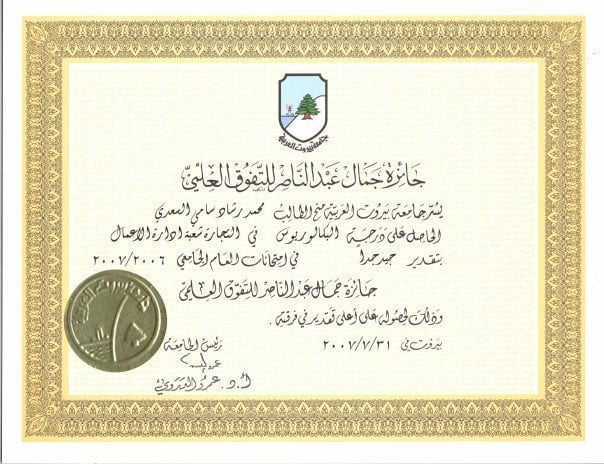 جامعة بيروت العربية
جائزة جمال عبد الناصر للتفوق العلمي
يسر جامعة بيروت العربية منح الطالب محمد رشاد سامي السعدي
الحاصل على درجة البكالوريوس في التجارة شعبة ادارة الاعمال
بتقدير جيد جداً في امتحانات العام الجامعي ٢٠٠٧/٢٠٠٦
جائزة جمال عبد الناصر للتفوق العلمي
وذلك لحصوله على أعلى تقدير في فرقته .
بيروت في ٢٠٠٧/٧/٣١
رئيس الجامعة
أ.د. عمرو العدوي